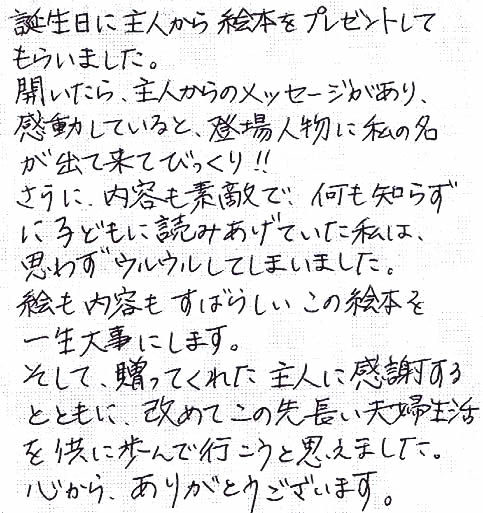 誕生日に主人から絵本をプレゼントして
もらいました。
開いたら、主人からのメッセージがあり、
感動していると、登場人物に私の名
が出て来てびっくり!!
さらに、内容も素敵で、何も知らず
に子どもに読みあげていた私は、
思わずウルウルしてしまいました。
絵も内容もすばらしいこの絵本を
一生大事にします。
そして、贈ってくれた主人に感謝する
とともに、改めてこの先長い夫婦生活
を供に歩んで行こうと思えました。
心から、ありがとうございます。